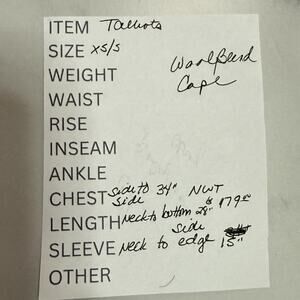 ITEM Talbots
SIZE xs/s
WEIGHT Wool Blend
WAIST Cape
RISE
INSEAM
ANKLE
CHEST side to side 34" NWT
LENGTH Neck to bottom 28" $179.00
side
SLEEVE Neck to edge 15"
OTHER